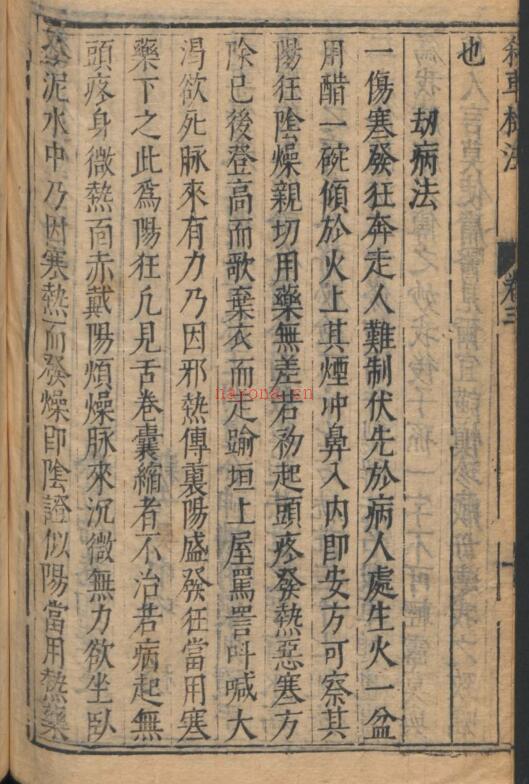 殺車槌法 卷三
也
劫病法
一傷寒發狂奔走人難制伏先於病人處生火一盆
用醋一碗傾於火上其煙冲鼻入内即安方可察其
陽狂陰燥親切用藥無差若初起頭疼發熱惡寒方
除已後登高而歌棄衣而走踰垣上屋罵詈呌喊大
渴欲死脉來有力乃因邪熱傳裏陽盛發狂當用寒
藥下之此爲陽狂凢見舌卷囊縮者不治若病起無
頭疼身微熱面赤戴陽煩燥脉來沉微無力欲坐臥
於泥水中乃因寒熱而發燥即陰證似陽當用熱藥
narona.cn